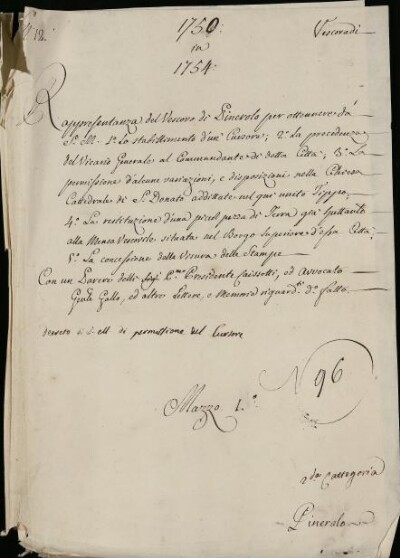 N 12.
1750
in
1754.
Vescovadi
Rappresentanza del Vescovo di Pinerolo per ottenere da
S. M. 1.° Lo stabilimento d'un Cursore; 2.° La precedenza
del Vicario Generale al Commandante di detta Città; 3.° La
permissione d'alcune variazioni, e disposizioni nella Chiesa
Cattedrale di S. Donato addittate nel qui unito Tippo;
4.° La restituzione d'una piccol pezza di Terra già spettante
alla Mensa Vescovile situata nel Borgo Superiore d'essa Città;
5.° La concessione della Stampe
Con un Parere delli Sigri Presidente Caissotti, ed Avvocato
Genle Gallo, ed altre Lettere, e Memorie riguardti do fatto.
decreto di S. M. di permissione del Cursore
N 96
Mazzo 1.°
2da Cattegoria
Pinerolo